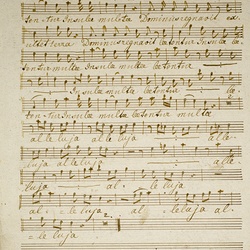 ten-tur Insulæ multæ Dominus regnavit ex-
ultet terra Dominus regnavit lætentur Insulæ læ-
tentur multæ Insulæ multæ lætentur
Insulæ multæ lætentur læ-
tentur Insulæ multæ lætentur multæ
alleluja alleluja alle-
luja alleluja
luja al- le
al- leluja alleluja al-
leluja